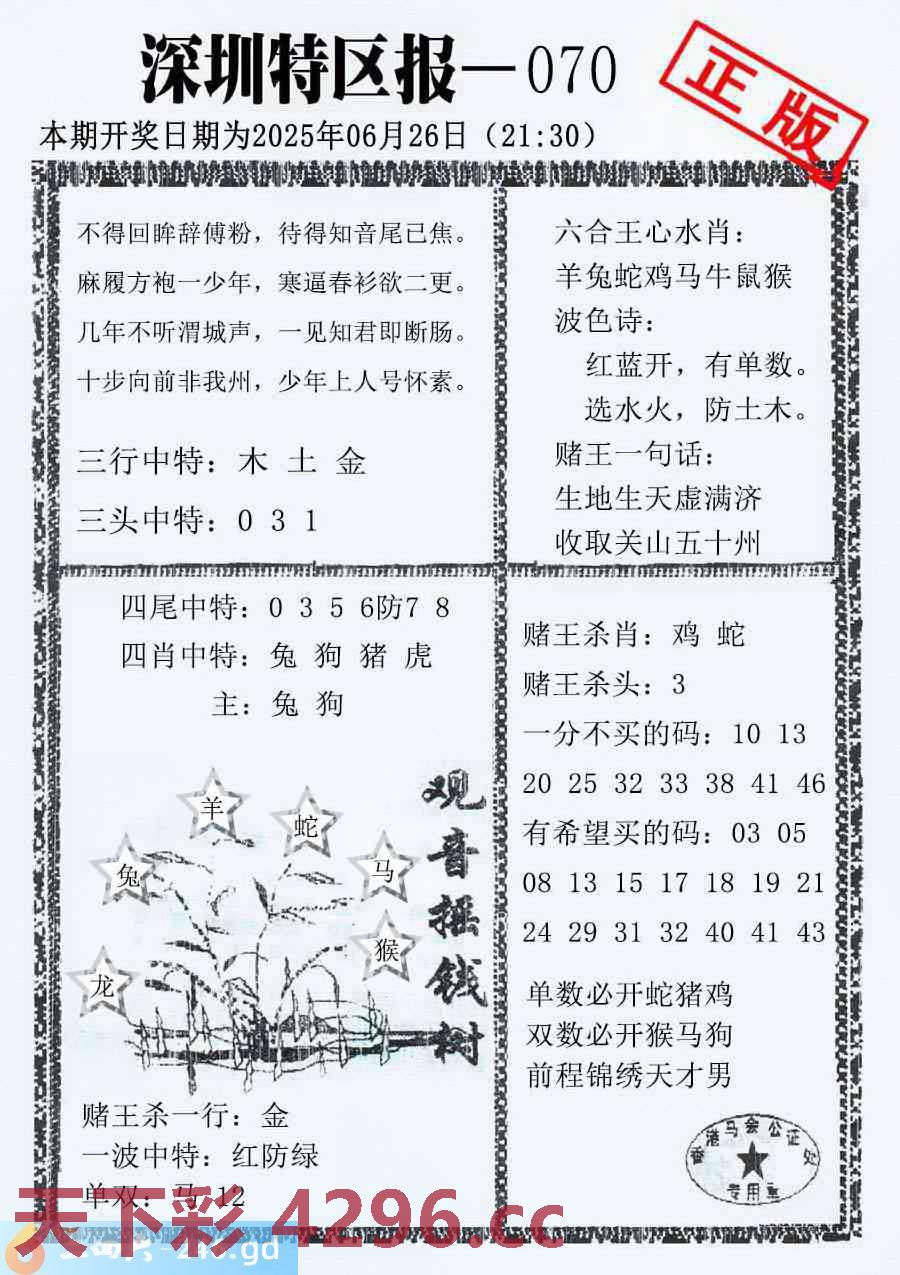 深圳特区报—070
正版
本期开奖日期为2025年06月26日（21:30）
不得回眸辞傅粉，待得知音尾已焦。
麻履方袍一少年，寒逼春衫欲二更。
几年不听渭城声，一见知君即断肠。
十步向前非我州，少年上人号怀素。
三行中特：木 土 金
三头中特：0 3 1
六合王心水肖：
羊兔蛇鸡马牛鼠猴
波色诗：
红蓝开，有单数。
选水火，防土木。
赌王一句话：
生地生天虚满济
收取关山五十州
四尾中特：0 3 5 6防7 8
四肖中特：兔 狗 猪 虎
主：兔 狗
观音摇钱树
羊
蛇
兔
马
猴
龙
赌王杀一行：金
一波中特：红防绿
单双：马 12
赌王杀肖：鸡 蛇
赌王杀头：3
一分不买的码：10 13
20 25 32 33 38 41 46
有希望买的码：03 05
08 13 15 17 18 19 21
24 29 31 32 40 41 43
单数必开蛇猪鸡
双数必开猴马狗
前程锦绣天才男
香港马会公证处
专用章
天下彩 4296.cc